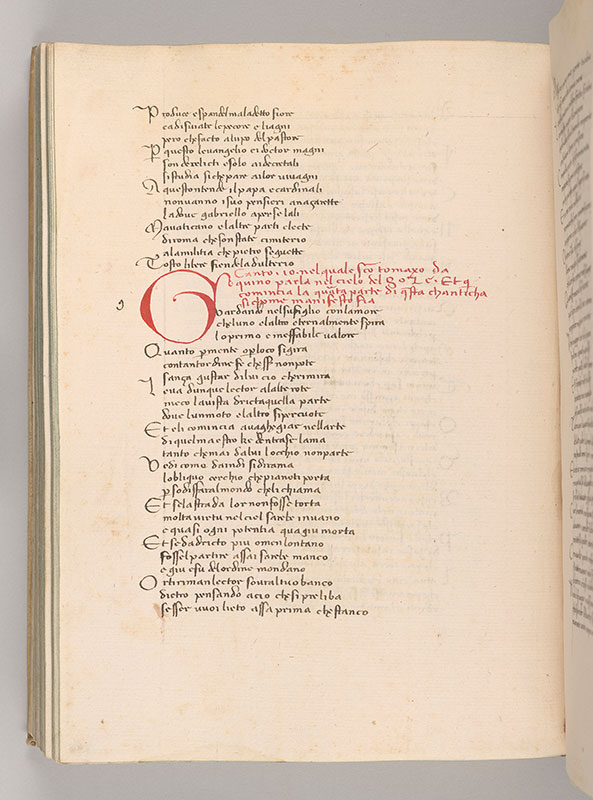 Produce espandel maladetto fiore
cadisviate lepecore e liagni
pero chefacto alupo del pastore
P questo levangelio e i doctor magni
son derelicti esolo aidecretali
sistudia sichepare ailor vivagni
A questontende ilpapa ecardinali
nonvanno i suo pensieri anaçarette
ladove gabriello aperse lali
Mavaticano elaltre parti electe
diroma chesonstate cimiterio
alamilitia chepietro seguette
Tosto libere fiendeladulterio
Canto .10. nel quale sco tomaxo da
quino parla nel cielo del Sole. Et q
comincia la quarta parte di qsta chanticha
si chome manifesto fia
g
Guardando nelsufiglio conlamore
cheluno elaltro eternalmente spira
loprimo e ineffabile valore
Quanto pmente oploco sigira
contantordine fe chessr nonpote
sança gustar dilui cio cherimira
Leva dunque lector alalte rote
meco lavista drictaquella parte
dove lunmoto elaltro sipercuote
Et eli comincia avagheggiar nellarte
diquelmaestro ke dentrase lama
tanto chemai dalui locchio nonparte
Vedi come daindi sidirama
lobliquo cerchio chepianeti porta
p sodisfaralmondo cheli chiama
Et selastrada lor nonfosse torta
molta virtu nel ciel sarebe invano
e quasi ogni potentia quagiu morta
Et sedadricto piu omen lontano
fossel partire assai sarebe manco
e giu esu delordine mondano
Or tiriman lector sovraltuo banco
dietro pensando acio chesi preliba
sesser vuoi lieto assa prima chestanco